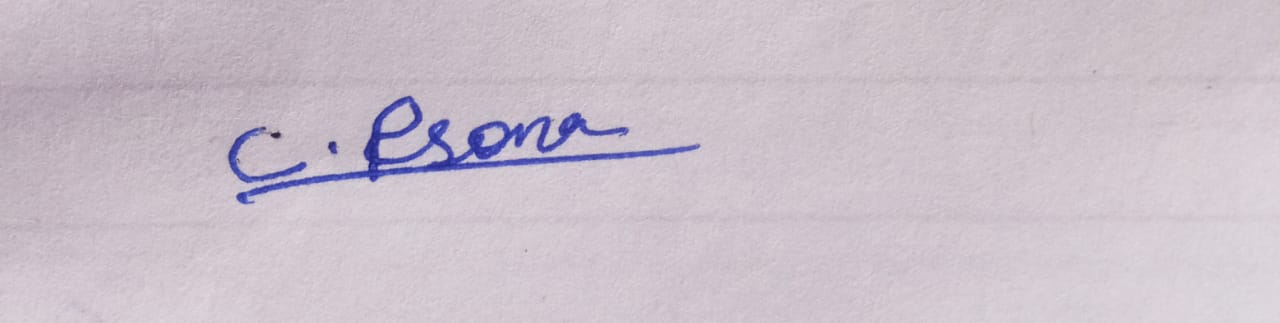 C. Psona